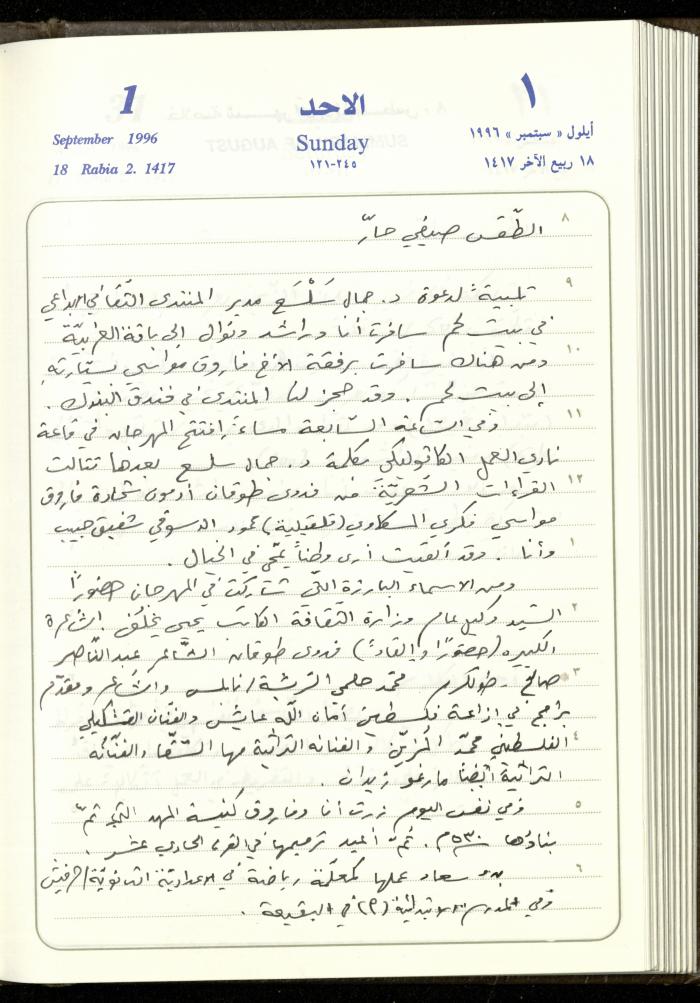 1
الاحد
١
September 1996
Sunday
أيلول « سبتمبر » ١٩٩٦
18 Rabia 2. 1417
١٢١-٢٤٥
١٨ ربيع الآخر ١٤١٧
٨
الطّقس صيفي حارّ
٩
تلبيةً لدعوة د. جمال سَلْسَع مدير المنتدى الثقافي الإبداعي
في بيت لحم سافرت أنا وراشد ونوال إلى باقة الغربيّة
١٠
ومن هناك سافرت برفقة الأخ فاروق مواسي بسيّارته
إلى بيت لحم . وقد حجز لنا المنتدى في فندق البندك .
١١
وفي السّاعة السّابعة مساءً إفتتح المهرجان في قاعة
نادي العمل الكاثوليكي بكلمة د. جمال سلسع بعدها تتالت
١٢
القراءات الشعريّة من فدوى طوقان أدمون شحادة فاروق
مواسي فكري المسكاوي (قلقيلية) محمود الدسوقي شفيق حبيب
١
وأنا . وقد ألقيت أرى وطناً يمّحي في الخيال .
ومن الاسماء البارزة التّي شاركت في المهرجان حضورًا
٢
السّيد وكيل عام وزارة الثقافة الكاتب يحيى يخلف الشاعرة
الكبيره (حضورًا وإلقاءً) فدوى طوقان الشّاعر عبد النّاصر
٣
صالح - طولكرم محمّد حلمي الرّيشة / نابلس والشّاعر ومقدّم
برامج في إذاعة فلسطين أمان اللّه عايش والفنّان التشكيلي
٤
الفلسطيني محمّد المُزيّن والفنانه التراثية مها السّقّا والفنّانة
التراثية أيضًا مارغو زيدان .
٥
وفي نفس اليوم زرت أنا وفاروق كنيسة المهد التي تمّ
بناؤها ٥٣٠م . ثمّ أعيد ترميمها في القرن الحادي عشر .
٦
بدء سعاد عملها كمعلّمة رياضة في الاعداديّة الثانويّة / حرفيش
وفي المدرسة الابتدائية (٩) في البقيعة .